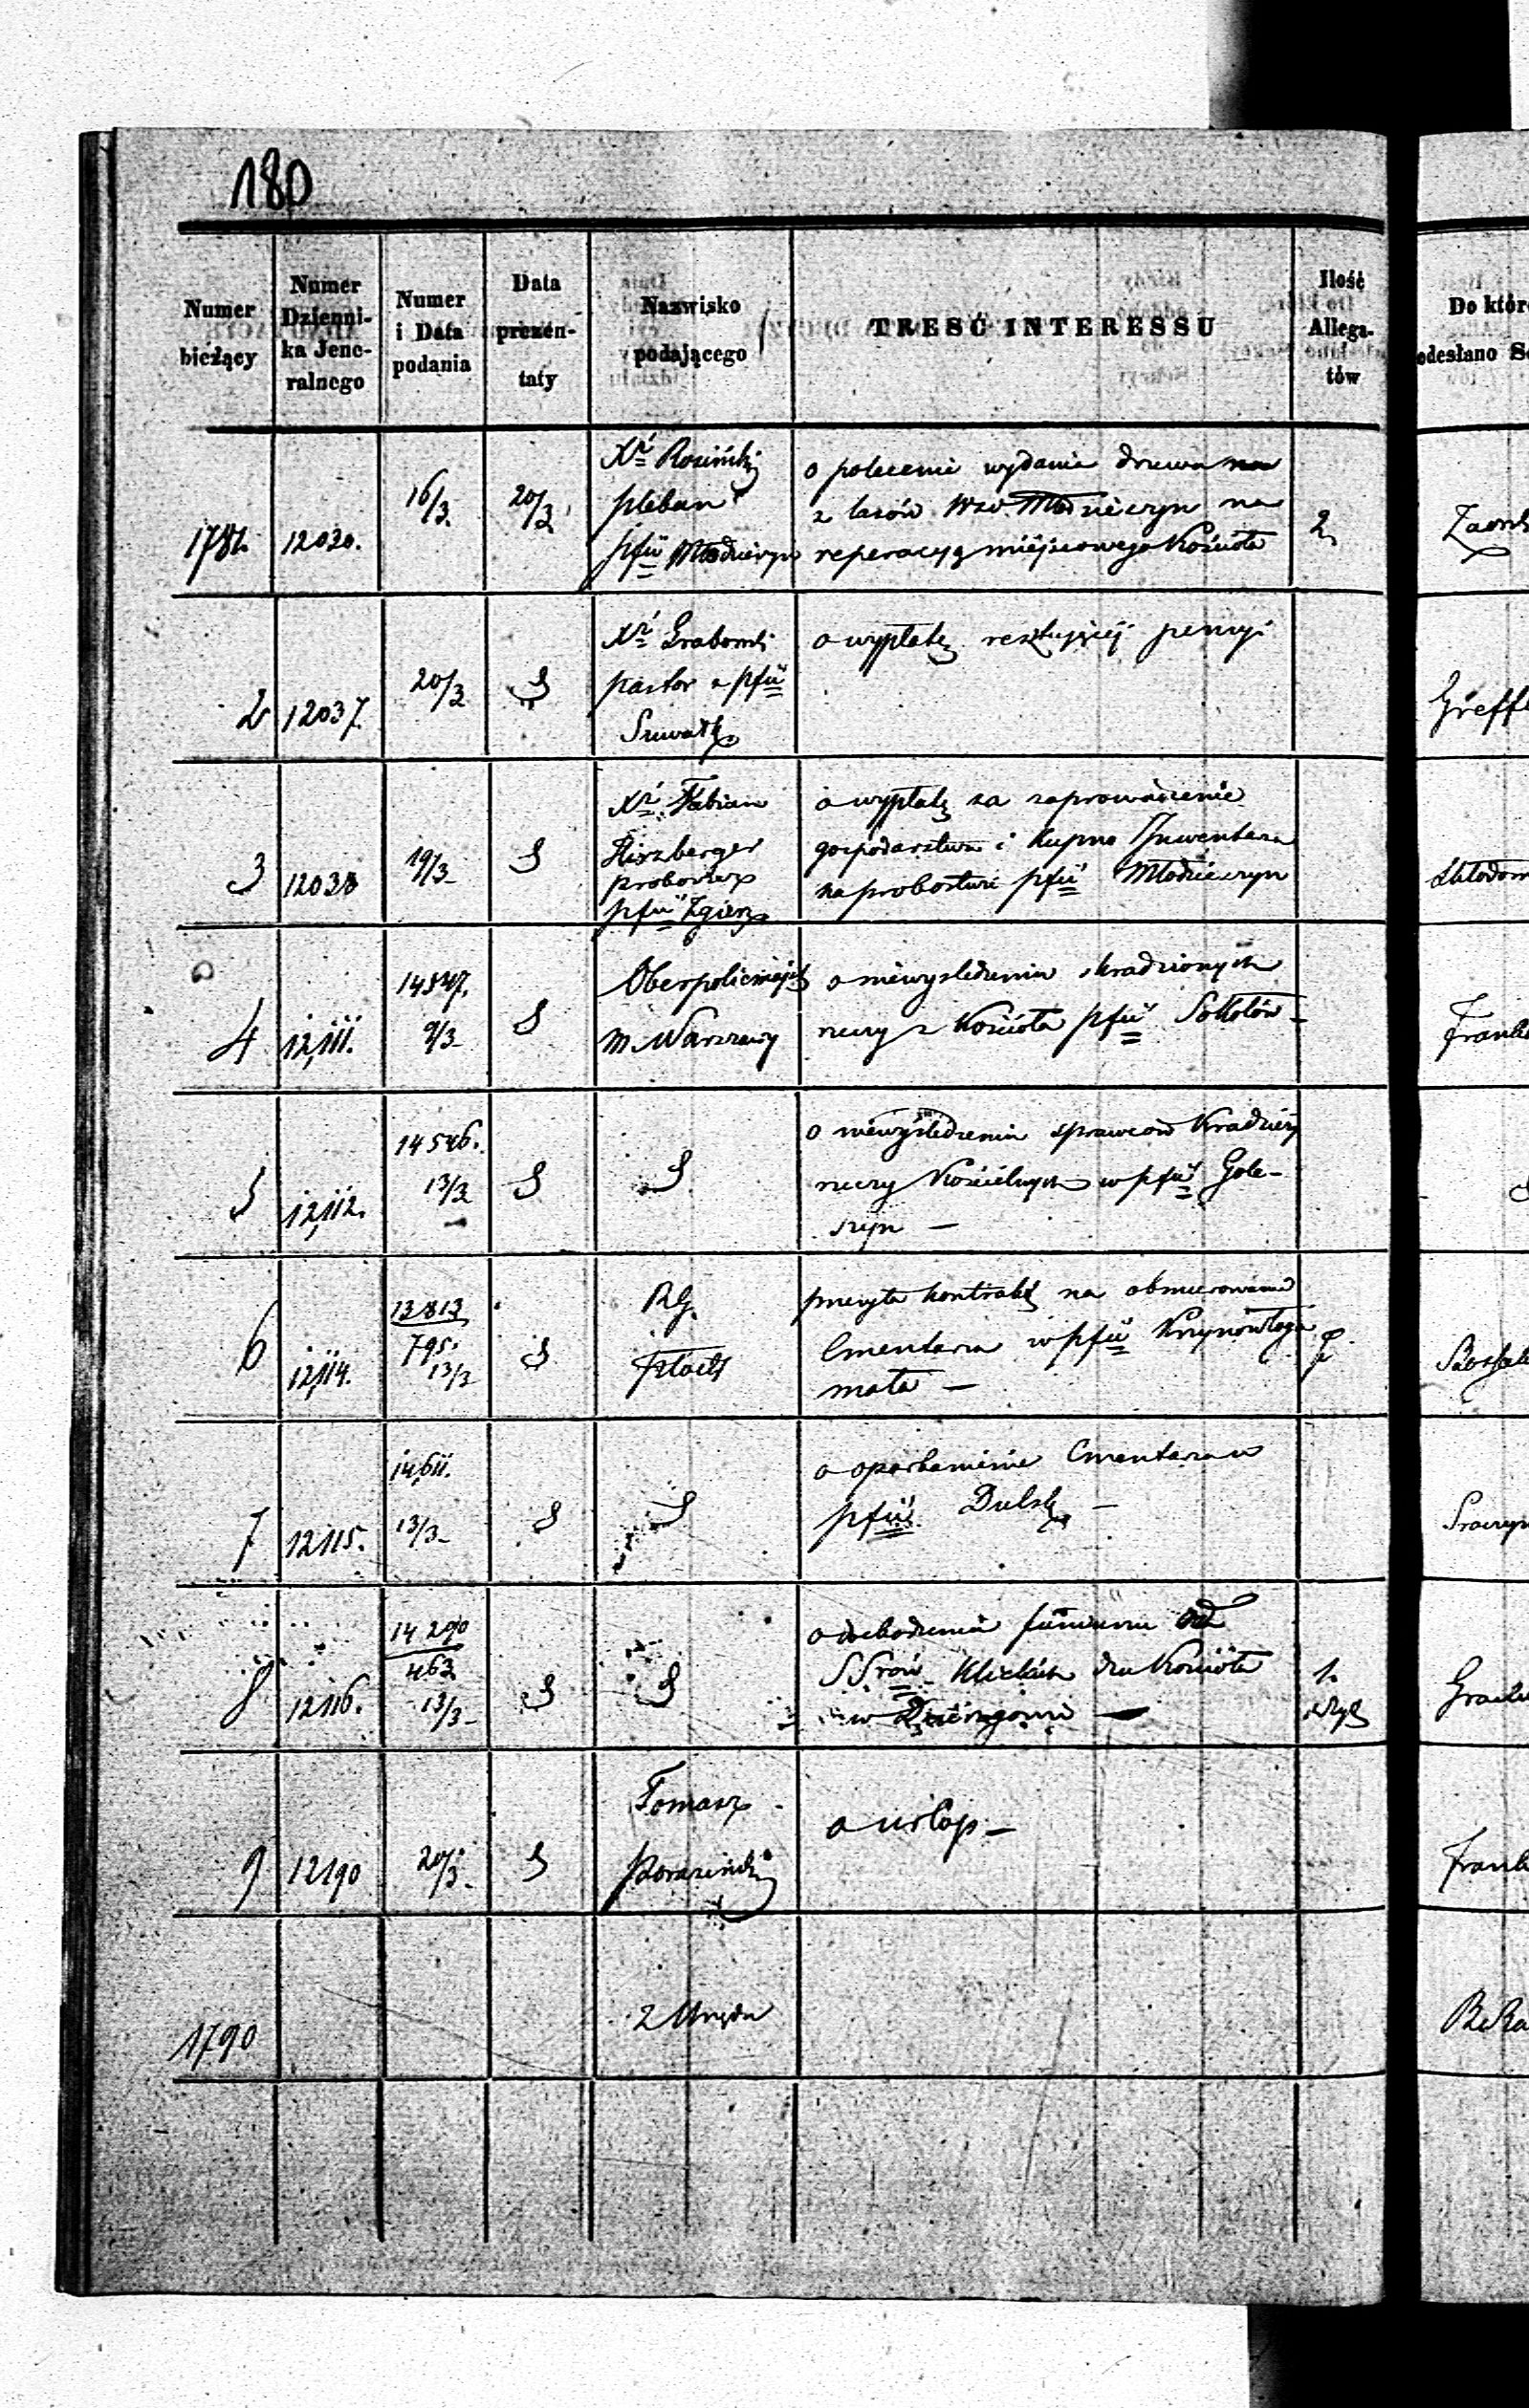 180
Numer bieżący
Numer Dzienni-ka Jene-ralnego
Numer i Data podania
Data prezen-taty
Nazwisko podającego
TREŚĆ INTERESSU
Ilość Allega-tów
Do któr
odesłano S
1781. 12030. 16/3. 20/3
Xdz Rosiński
pleban
pfii Młodzieszyn
o polecenie wydania drzewa
z lasów Młodzieszyn na
reperacyą miejscowego Kościoła
2
2 12037. 20/3 S
Xdz Grabowski
pastor z pfii
Suwałk
o wypłatę resztującej pensyi
Greff
3 12038 19/3 S
Xdz Fabian
Hirszberger
proboszcz
pfii Zgierz
o wypłatę za zaprowadzenie
gospodarstwa i kupno Inwentarza
na probostwie pfii Młodzieszyn
4 12,111. 14547. 9/3 S
Oberpolicmajst
m. Warszawy
o niewyśledzeniu skradzionych
rzeczy z Kościoła pfii Sokołów
Frank
5 12,112. 14546. 13/3 S S
o niewyśledzeniu sprawców kradzieży
rzeczy Kościelnych w pfii Gole-
szyn —
6 12,114. 13813/795. 13/3 S
RG.
Płock
przesyła kontrakt na obmurowanie
Cmentarza w pfii Krzynowłoga
mała —
7 12115. 14,611. 13/3 S S
o oparkanienie Cmentarza w
pfii Dulsk —
8 12116. 14290/463 13/3 S S
o dochodzeniu funduszu od
SSrów Klickich dla Kościoła
w Dzierzgowie —
1.
9 12190 20/3. S
Tomasz
o urlop —
Frank
1790
z Urzędu